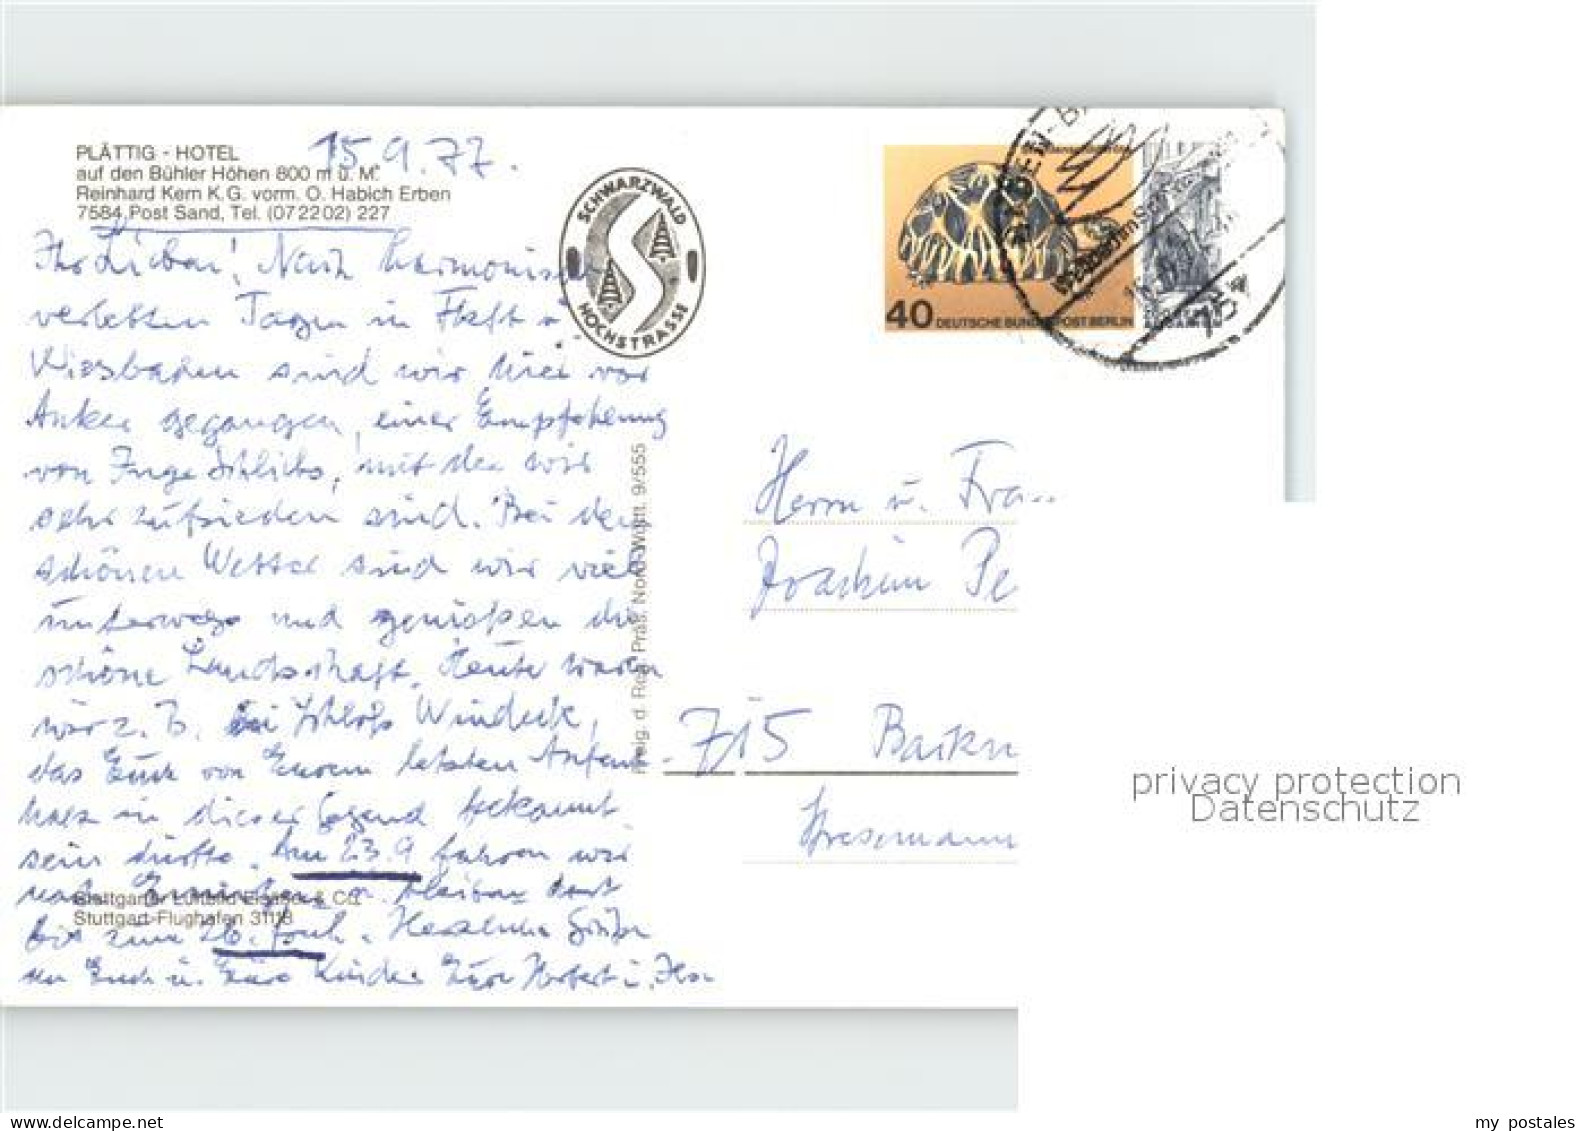 PLÄTTIG - HOTEL
auf den Bühler Höhen 800 m ü. M.
Reinhard Kern K.G. vorm. O. Habich Erben
7584 Post Sand, Tel. (07 22 02) 227
15.9.77.
SCHWARZWALD
HOCHSTRASSE
40 DEUTSCHE BUNDESPOST BERLIN
Ihr Lieben! Nach harmonisch
verlebten Tagen in
Wiesbaden sind wir hier vor
Anker gegangen, einer Empfehlung
von Inge, mit der wir
sehr zufrieden sind. Bei dem
schönen Wetter sind wir viel
unterwegs und genießen die
schöne Landschaft. Heute waren
wir z. B. bei Schloß Windeck,
das Euch von Eurem letzten Aufent-
halt in dieser Gegend bekannt
sein dürfte. Am 23.9 fahren wir
nach u. bleiben dort
bis zum 26. früh. Herzliche Grüße
an Euch u. Eure Kinder Eure Herbert u.
Stuttgarter Luftbild Elsäßer & Co.
Stuttgart-Flughafen 31118
Freig. d. Reg. Präs. Nord-Württ. 9/555
Herrn u. Frau
Joachim Pe
715 Backn
Stresemann
privacy protection
Datenschutz
my postales